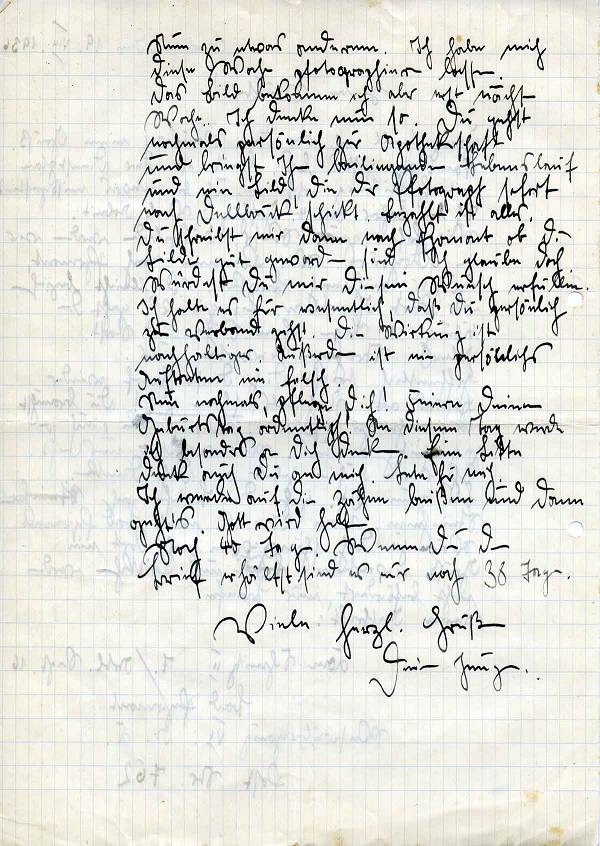 Nun zu etwas anderem. Ich habe mich
diese Woche photographieren lassen.
Das Bild bekomme ich aber erst nächste
Woche. Ich denke nun so. Du gehst
nochmals persönlich zur
und bringst Ihr beiliegenden Lebenslauf
und ein Bild, die der Photograph sofort
nach schickt. Bezahlt ist alles.
Du schreibst mir dann nach ob die
Bilder gut geworden sind. Ich glaube doch
Würdest Du mir diesen Wunsch erfüllen.
Ich halte es für wesentlich, daß Du persönlich
zum Verband gehst. Die Wirkung ist
nachhaltiger. Außerdem ist ein persönliches
Auftreten nie falsch.
Nun nochmals, pflege Dich! Feiere Deinen
Geburtstag ordentlich! An diesem Tag werde
ich besonders an Dich denken. Bitte
denk auch Du an mich.
Ich werde auf die Zähne beißen und dann
geht's. Gott wird helfen.
Noch 40 Tage. Wenn Du den
Brief erhältst sind es nur noch 38 Tage.
Viele herzl. Grüße
Dein Junge.